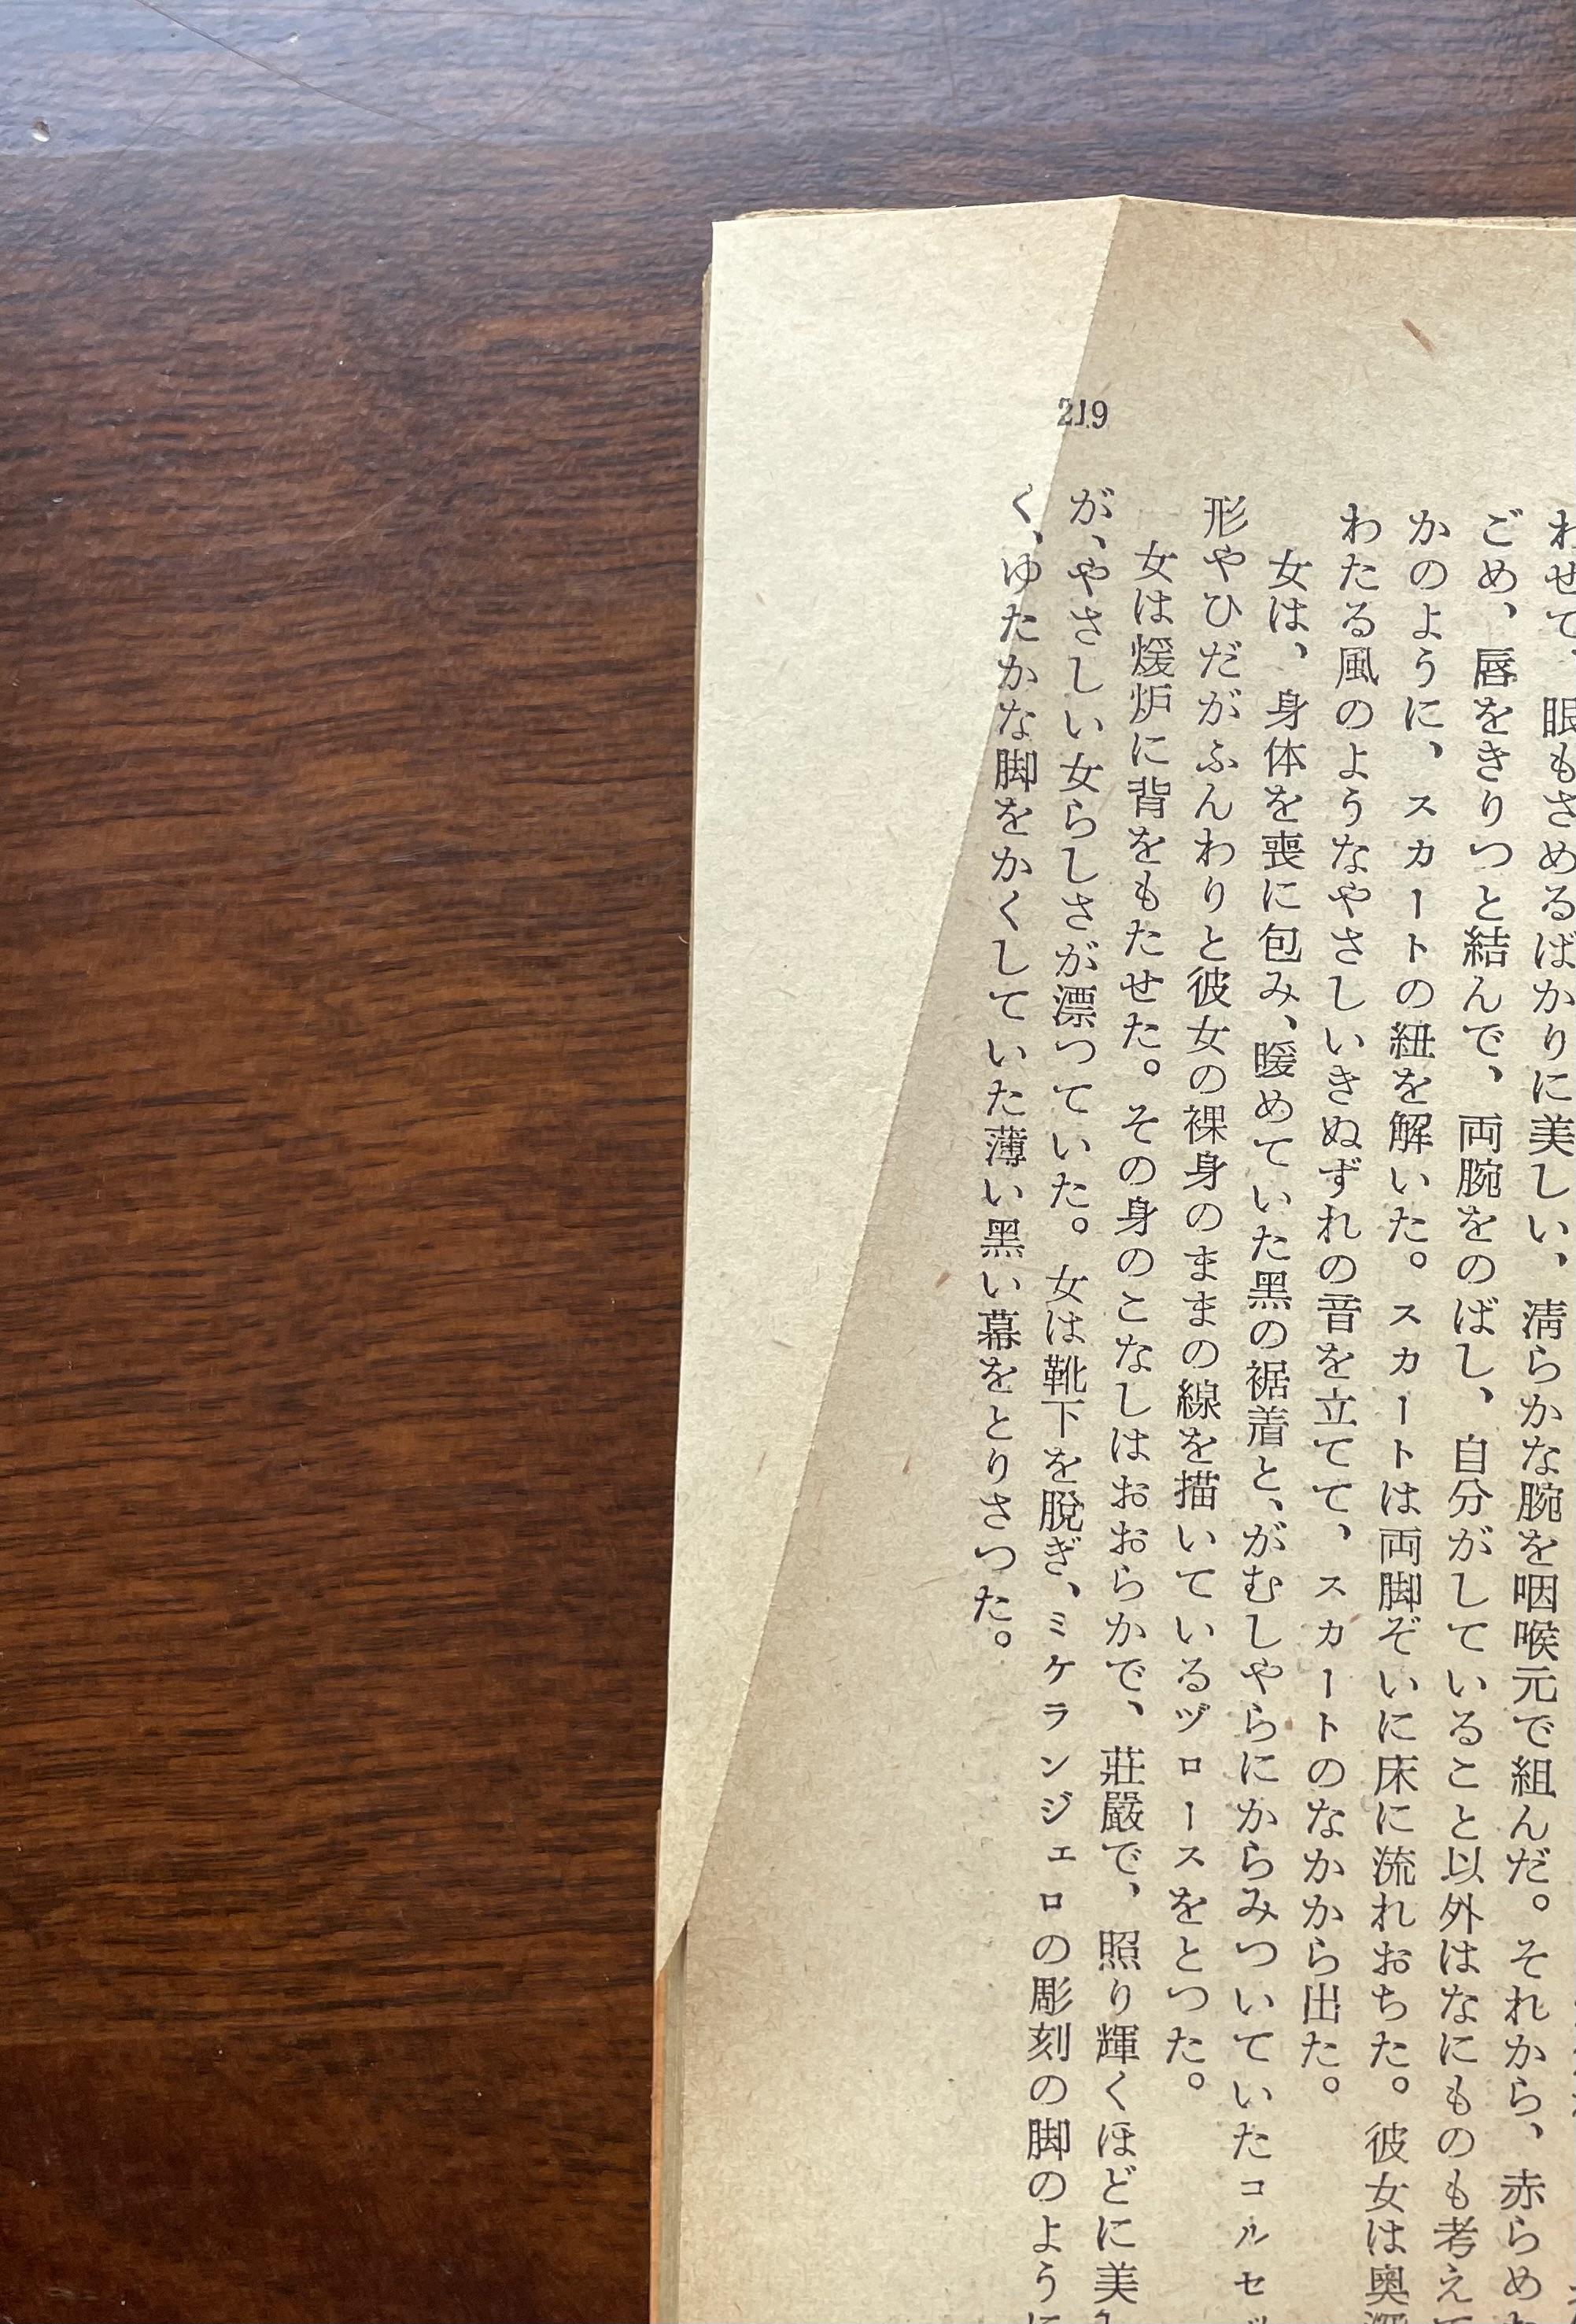 219
わせて、眼もさめるばかりに美しい、淸らかな腕を咽喉元で組んだ。それから、赤らめ
ごめ、唇をきりつと結んで、両腕をのばし、自分がしていること以外はなにものも考え
かのように、スカートの紐を解いた。スカートは両脚ぞいに床に流れおちた。彼女は奥深
わたる風のようなやさしいきぬずれの音を立てて、スカートのなかから出た。
女は、身体を喪に包み、暖めていた黒の裾着と、がむしやらにからみついていたコルセ
形やひだがふんわりと彼女の裸身のままの線を描いているヅロースをとつた。
女は煖炉に背をもたせた。その身のこなしはおおらかで、荘嚴で、照り輝くほどに美
が、やさしい女らしさが漂つていた。女は靴下を脱ぎ、ミケランジェロの彫刻の脚のように
く、ゆたかな脚をかくしていた薄い黑い幕をとりさつた。